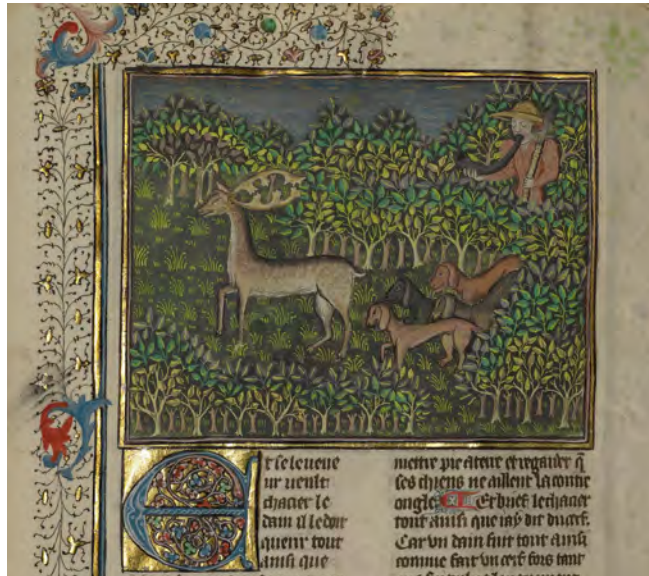 Et se le ueneur
ur ueult
chacier le
dain il le doit
querir tout
ainsi que
mettre pie a terre et regarder q̄
ses chiens ne aillent la contre
ongle Et brief le chacier
tout ainsi que iay dit du cerf.
Car vn dain fuit tout ainsi
comme fait vn cerf fors tant